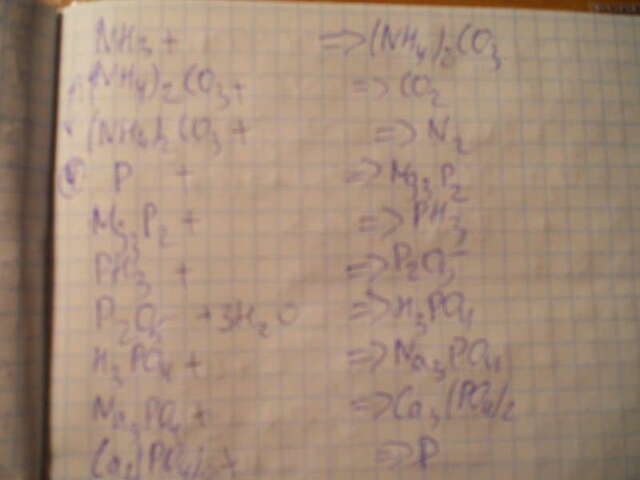 NH3 + => (NH4)2CO3
(NH4)2CO3 + => CO2
(NH4)2CO3 + => N2
P + => Mg3P2
Mg3P2 + => PH3
PH3 + => P2O5
P2O5 + 3H2O => H3PO4
H3PO4 + => Na3PO4
Na3PO4 + => Ca3(PO4)2
Ca3(PO4)2 + => P